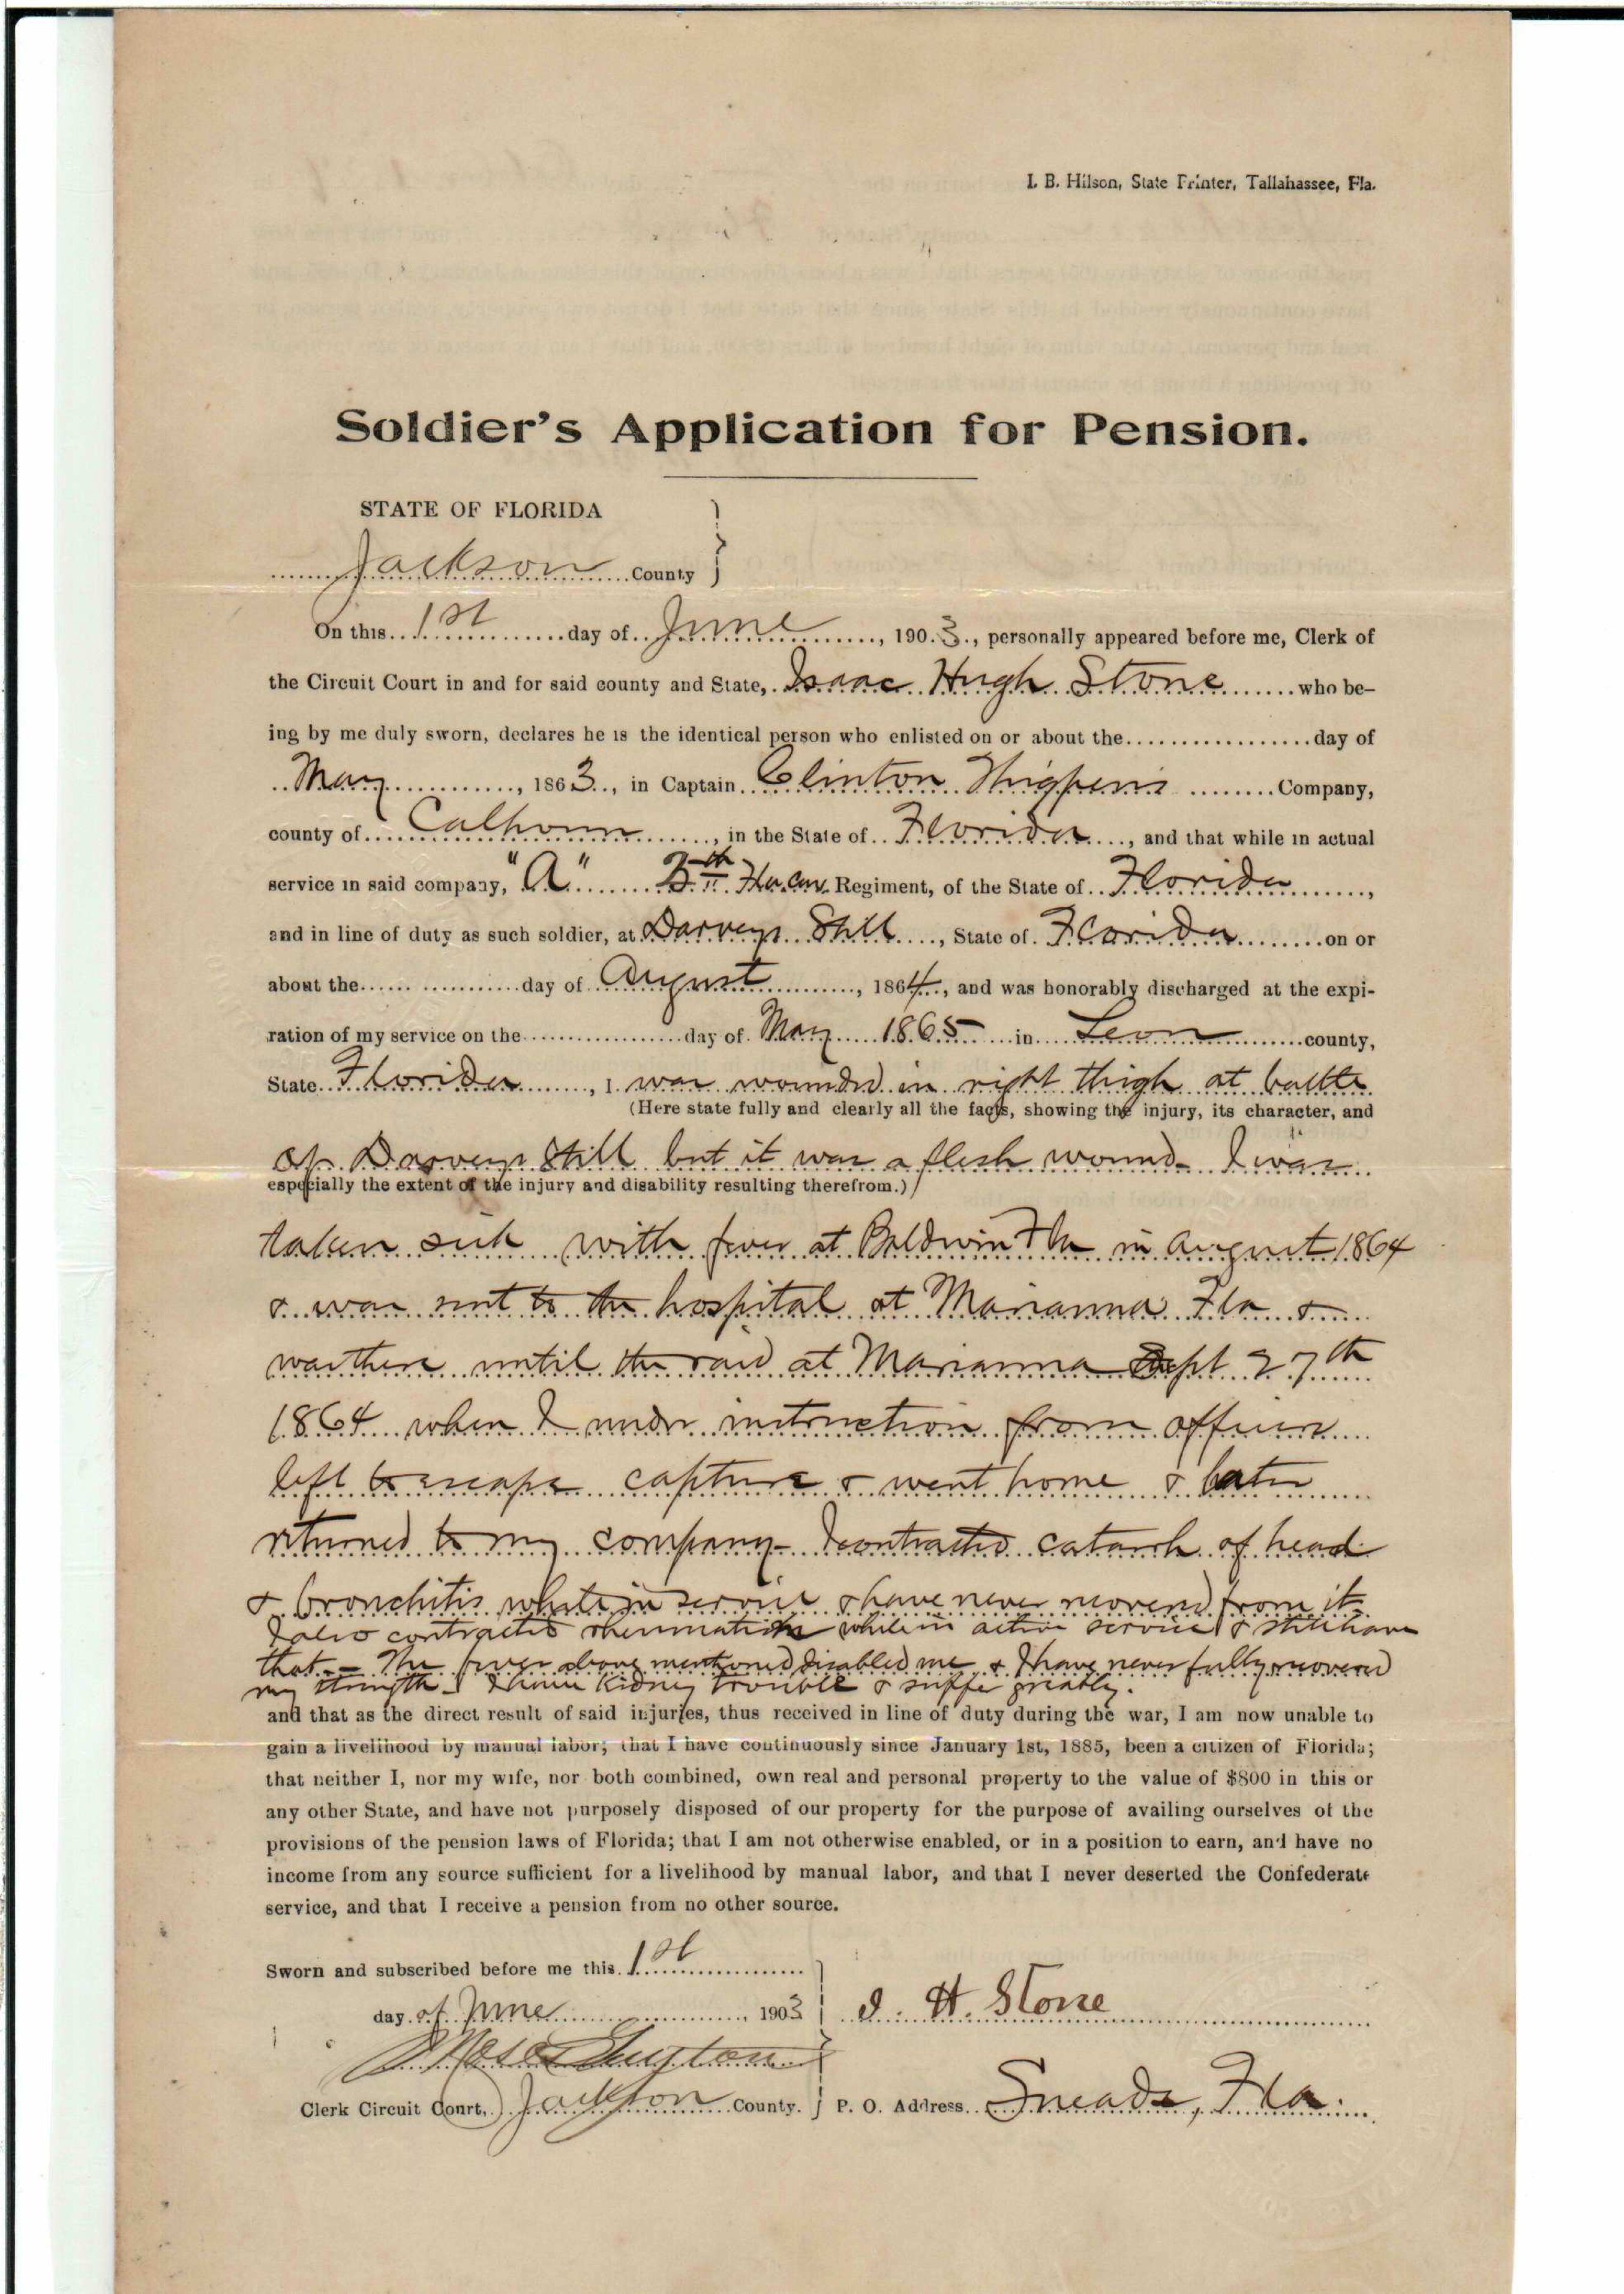 I. B. Hilson, State Printer, Tallahassee, Fla.
Soldier's Application for Pension.
STATE OF FLORIDA
Jackson County
On this 1st day of June, 1903, personally appeared before me, Clerk of
the Circuit Court in and for said county and State, Isaac Hugh Stone who be-
ing by me duly sworn, declares he is the identical person who enlisted on or about the day of
May, 1863, in Captain Clinton Thigpens Company,
county of Calhoun, in the State of Florida, and that while in actual
service in said company, "A" 5th Fla. Cav. Regiment, of the State of Florida,
and in line of duty as such soldier, at Darveys Still, State of Florida on or
about the day of August, 1864, and was honorably discharged at the expi-
ration of my service on the day of May 1865 in Leon county,
State Florida, I was wounded in right thigh at battle
(Here state fully and clearly all the facts, showing the injury, its character, and
of Darveys Still but it was a flesh wound - I was
especially the extent of the injury and disability resulting therefrom.)
taken sick with fever at Baldwin Fla in August 1864
& was sent to the hospital at Marianna Fla &
was there until the raid at Marianna Sept 27th
1864 when I under instruction from officers
left to escape capture & went home & later
returned to my company - I contracted catarrh of head
& bronchitis while in service & have never recovered from it.
I also contracted rheumatism while in active service & still have
that - The fever above mentioned disabled me & I have never fully recovered
my strength - I have Kidney trouble & suffer greatly.
and that as the direct result of said injuries, thus received in line of duty during the war, I am now unable to
gain a livelihood by manual labor; that I have continuously since January 1st, 1885, been a citizen of Florida;
that neither I, nor my wife, nor both combined, own real and personal property to the value of $800 in this or
any other State, and have not purposely disposed of our property for the purpose of availing ourselves of the
provisions of the pension laws of Florida; that I am not otherwise enabled, or in a position to earn, and have no
income from any source sufficient for a livelihood by manual labor, and that I never deserted the Confederate
service, and that I receive a pension from no other source.
Sworn and subscribed before me this 1st
day of June, 1903
I. H. Stone
Moses Guyton
Clerk Circuit Court, Jackson County.
P. O. Address Sneads, Fla.